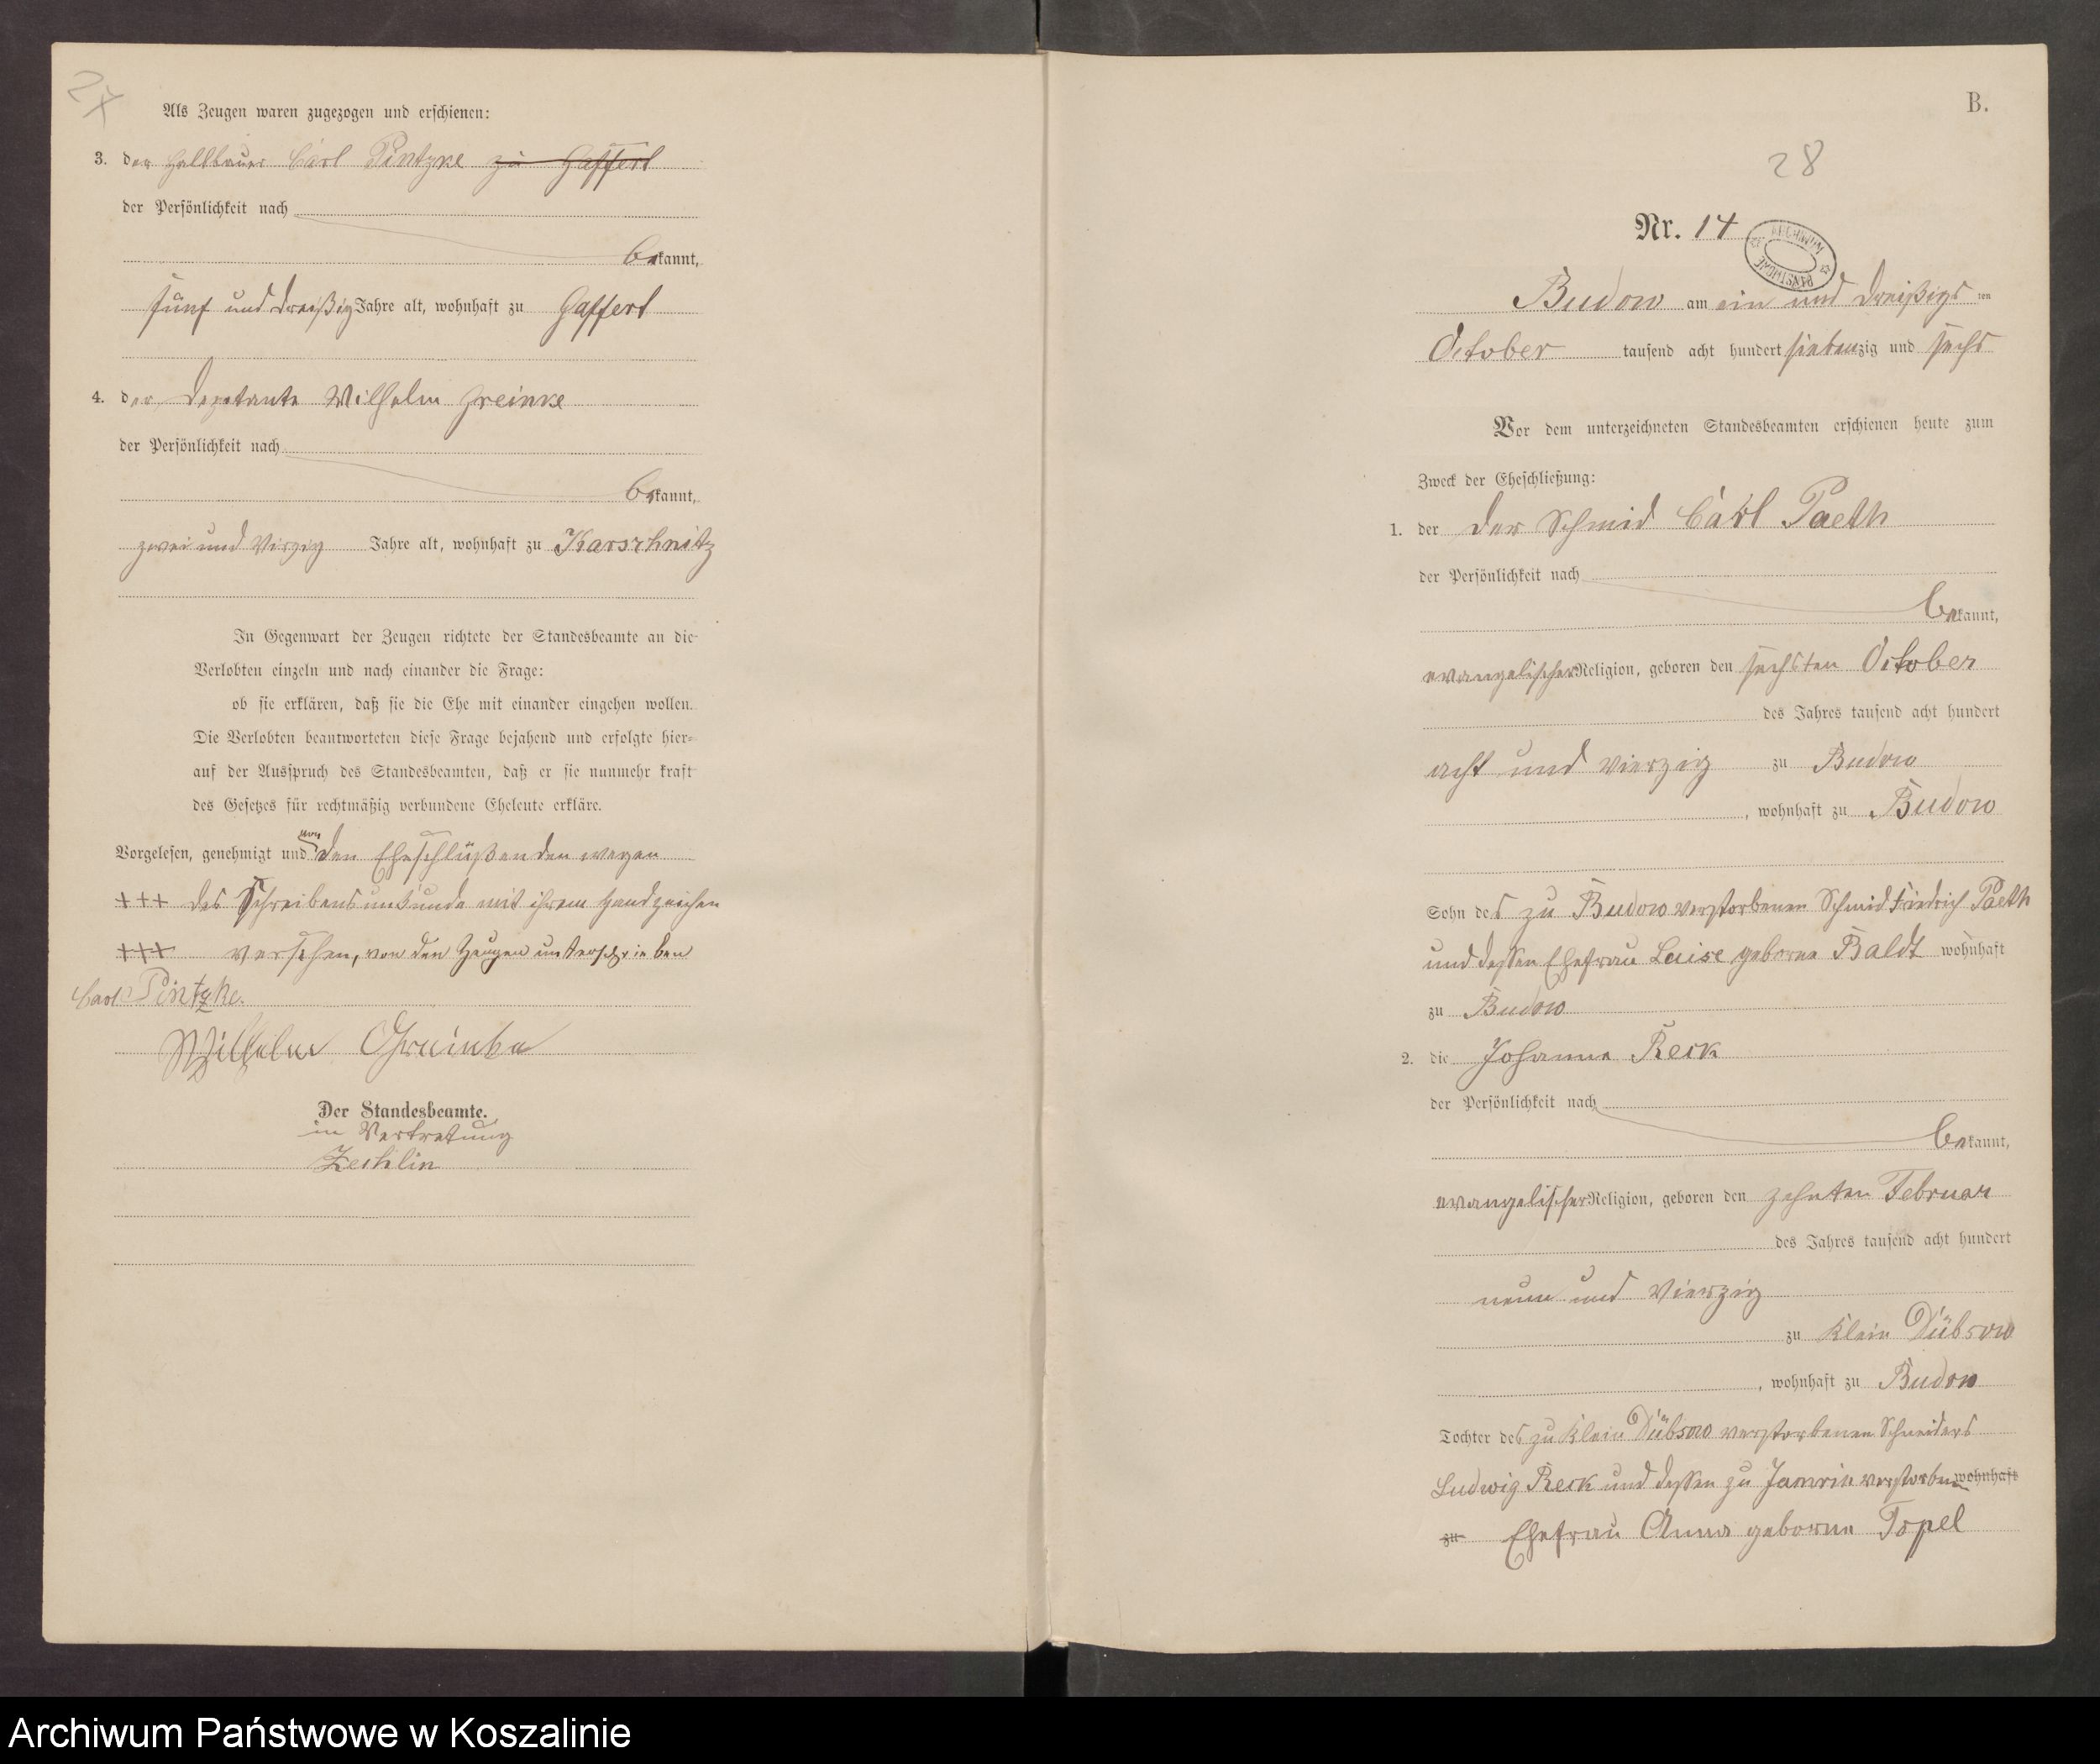 27
Als Zeugen waren zugezogen und erschienen:
3. der Halbbauer Carl Pintzke zu Gaffert
der Persönlichkeit nach
bekannt,
fünf und dreißig Jahre alt, wohnhaft zu Gaffert
4. der Deputante Wilhelm Greinke
der Persönlichkeit nach
bekannt,
zwei und Virzig Jahre alt, wohnhaft zu Karschnitz
In Gegenwart der Zeugen richtete der Standesbeamte an die
Verlobten einzeln und nach einander die Frage:
ob sie erklären, daß sie die Ehe mit einander eingehen wollen.
Die Verlobten beantworteten diese Frage bejahend und erfolgte hier-
auf der Ausspruch des Standesbeamten, daß er sie nunmehr kraft
des Gesetzes für rechtmäßig verbundene Eheleute erkläre.
Vorgelesen, genehmigt und von den Eheschlüßenden wegen
+++ des Schreibensunkunde mit ihrem Handzeichen
+++ versehen, von den Zeugen unterschrieben
Carl Pintzke.
Wilhelm Greinke
Der Standesbeamte.
in Vertretung
Zechlin
B.
28
Nr. 14
ARCHIWUM PAŃSTWOWE
Budow am ein und dreißigsten
October tausend acht hundert siebenzig und sechs
Vor dem unterzeichneten Standesbeamten erschienen heute zum
Zweck der Eheschließung:
1. der der Schmid Carl Paeth
der Persönlichkeit nach
bekannt,
evangelischer Religion, geboren den sechsten October
des Jahres tausend acht hundert
acht und vierzig zu Budow
, wohnhaft zu Budow
Sohn des zu Budow verstorbenen Schmid Friedrich Paeth
und dessen Ehefrau Luise geborne Baldt wohnhaft
zu Budow
2. die Johanna Reck
der Persönlichkeit nach
bekannt,
evangelischer Religion, geboren den zehnten Februar
des Jahres tausend acht hundert
neun und vierzig
zu Klein Dübsow
, wohnhaft zu Budow
Tochter des zu Klein Dübsow verstorbenen Schneiders
Ludwig Reck und dessen zu Jamrin verstorbenen wohnhaft
zu Ehefrau Anna geborne Topel
Archiwum Państwowe w Koszalinie